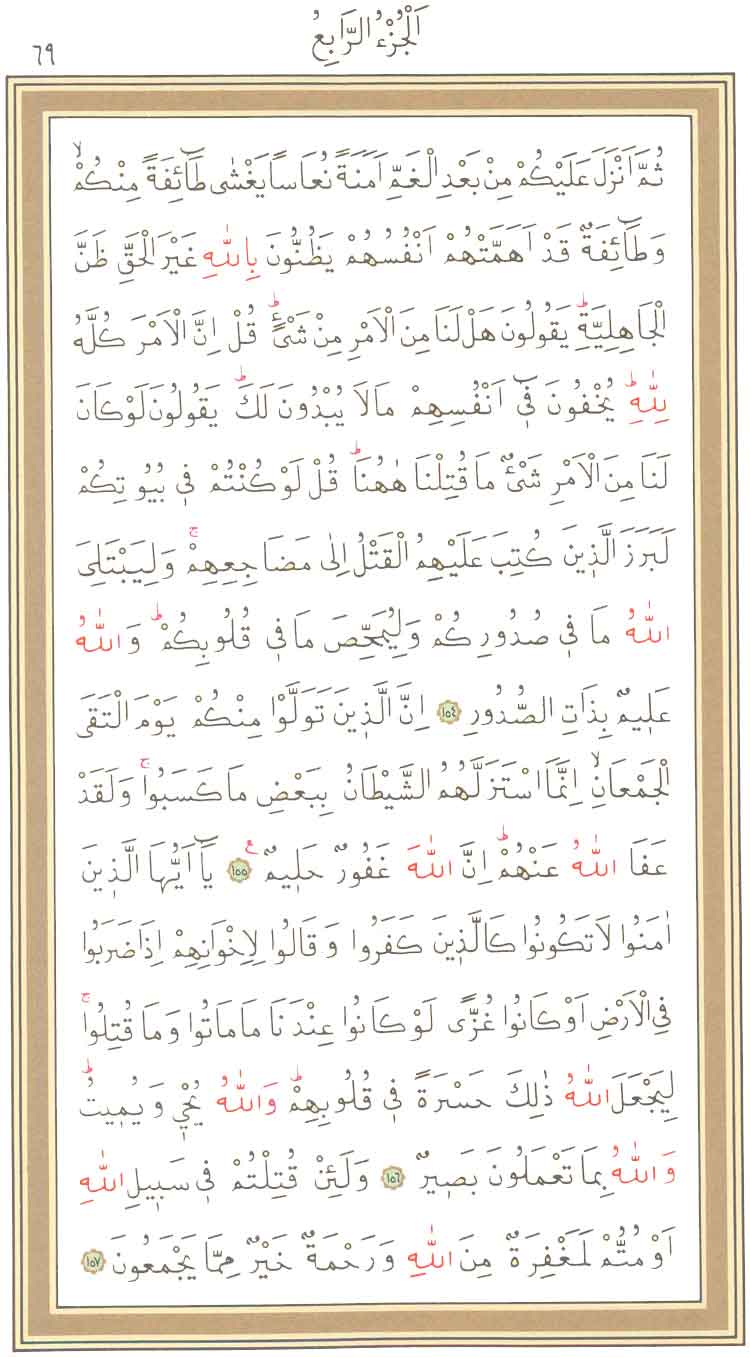 اَلْجُزْءُ الرَّابِعُ
٦٩
ثُمَّ اَنْزَلَ عَلَيْكُمْ مِنْ بَعْدِ الْغَمِّ اَمَنَةً نُعَاسًا يَغْشٰى طَٓائِفَةً مِنْكُمْۙ
وَطَٓائِفَةٌ قَدْ اَهَمَّتْهُمْ اَنْفُسُهُمْ يَظُنُّونَ بِاللّٰهِ غَيْرَ الْحَقِّ ظَنَّ
الْجَاهِلِيَّةِۜ يَقُولُونَ هَلْ لَنَا مِنَ الْاَمْرِ مِنْ شَيْءٍۜ قُلْ اِنَّ الْاَمْرَ كُلَّهُ
لِلّٰهِۜ يُخْفُونَ ف۪ٓي اَنْفُسِهِمْ مَا لَا يُبْدُونَ لَكَۜ يَقُولُونَ لَوْ كَانَ
لَنَا مِنَ الْاَمْرِ شَيْءٌ مَا قُتِلْنَا هٰهُنَاۜ قُلْ لَوْ كُنْتُمْ ف۪ي بُيُوتِكُمْ
لَبَرَزَ الَّذ۪ينَ كُتِبَ عَلَيْهِمُ الْقَتْلُ اِلٰى مَضَاجِعِهِمْۚ وَلِيَبْتَلِيَ
اللّٰهُ مَا ف۪ي صُدُورِكُمْ وَلِيُمَحِّصَ مَا ف۪ي قُلُوبِكُمْۜ وَاللّٰهُ
عَل۪يمٌ بِذَاتِ الصُّدُورِ ١٥٤ اِنَّ الَّذ۪ينَ تَوَلَّوْا مِنْكُمْ يَوْمَ الْتَقَى
الْجَمْعَانِۙ اِنَّمَا اسْتَزَلَّهُمُ الشَّيْطَانُ بِبَعْضِ مَا كَسَبُواۚ وَلَقَدْ
عَفَا اللّٰهُ عَنْهُمْۜ اِنَّ اللّٰهَ غَفُورٌ حَل۪يمٌ۟ ١٥٥ يَٓا اَيُّهَا الَّذ۪ينَ
اٰمَنُوا لَا تَكُونُوا كَالَّذ۪ينَ كَفَرُوا وَقَالُوا لِاِخْوَانِهِمْ اِذَا ضَرَبُوا
فِي الْاَرْضِ اَوْ كَانُوا غُزًّى لَوْ كَانُوا عِنْدَنَا مَا مَاتُوا وَمَا قُتِلُواۚ
لِيَجْعَلَ اللّٰهُ ذٰلِكَ حَسْرَةً ف۪ي قُلُوبِهِمْۜ وَاللّٰهُ يُحْي۪ وَيُم۪يتُۜ
وَاللّٰهُ بِمَا تَعْمَلُونَ بَص۪يرٌ ١٥٦ وَلَئِنْ قُتِلْتُمْ ف۪ي سَب۪يلِ اللّٰهِ
اَوْ مُتُّمْ لَمَغْفِرَةٌ مِنَ اللّٰهِ وَرَحْمَةٌ خَيْرٌ مِمَّا يَجْمَعُونَ ١٥٧